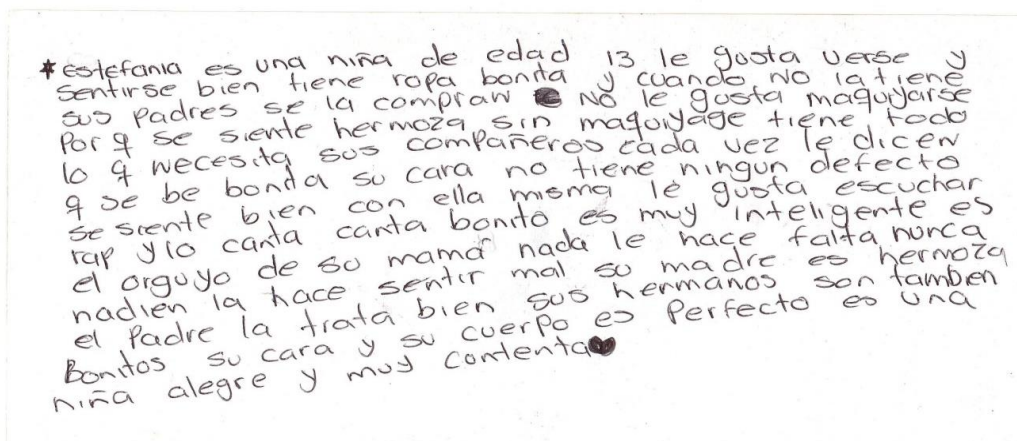 *estefania es una niña de edad 13 le gusta verse y
sentirse bien tiene ropa bonita y cuando no la tiene
sus padres se la compran No le gusta maquiyarse
Por q se siente hermoza sin maquiyage tiene todo
lo q necesita sus compañeros cada vez le dicen
q se be bonita su cara no tiene ningun defecto
se siente bien con ella misma le gusta escuchar
rap y lo canta canta bonito es muy inteligente es
el orguyo de su mamá nada le hace falta nunca
nadien la hace sentir mal su madre es hermoza
el Padre la trata bien sus hermanos son tambien
Bonitos su cara y su cuerpo es Perfecto es una
niña alegre y muy contenta♥